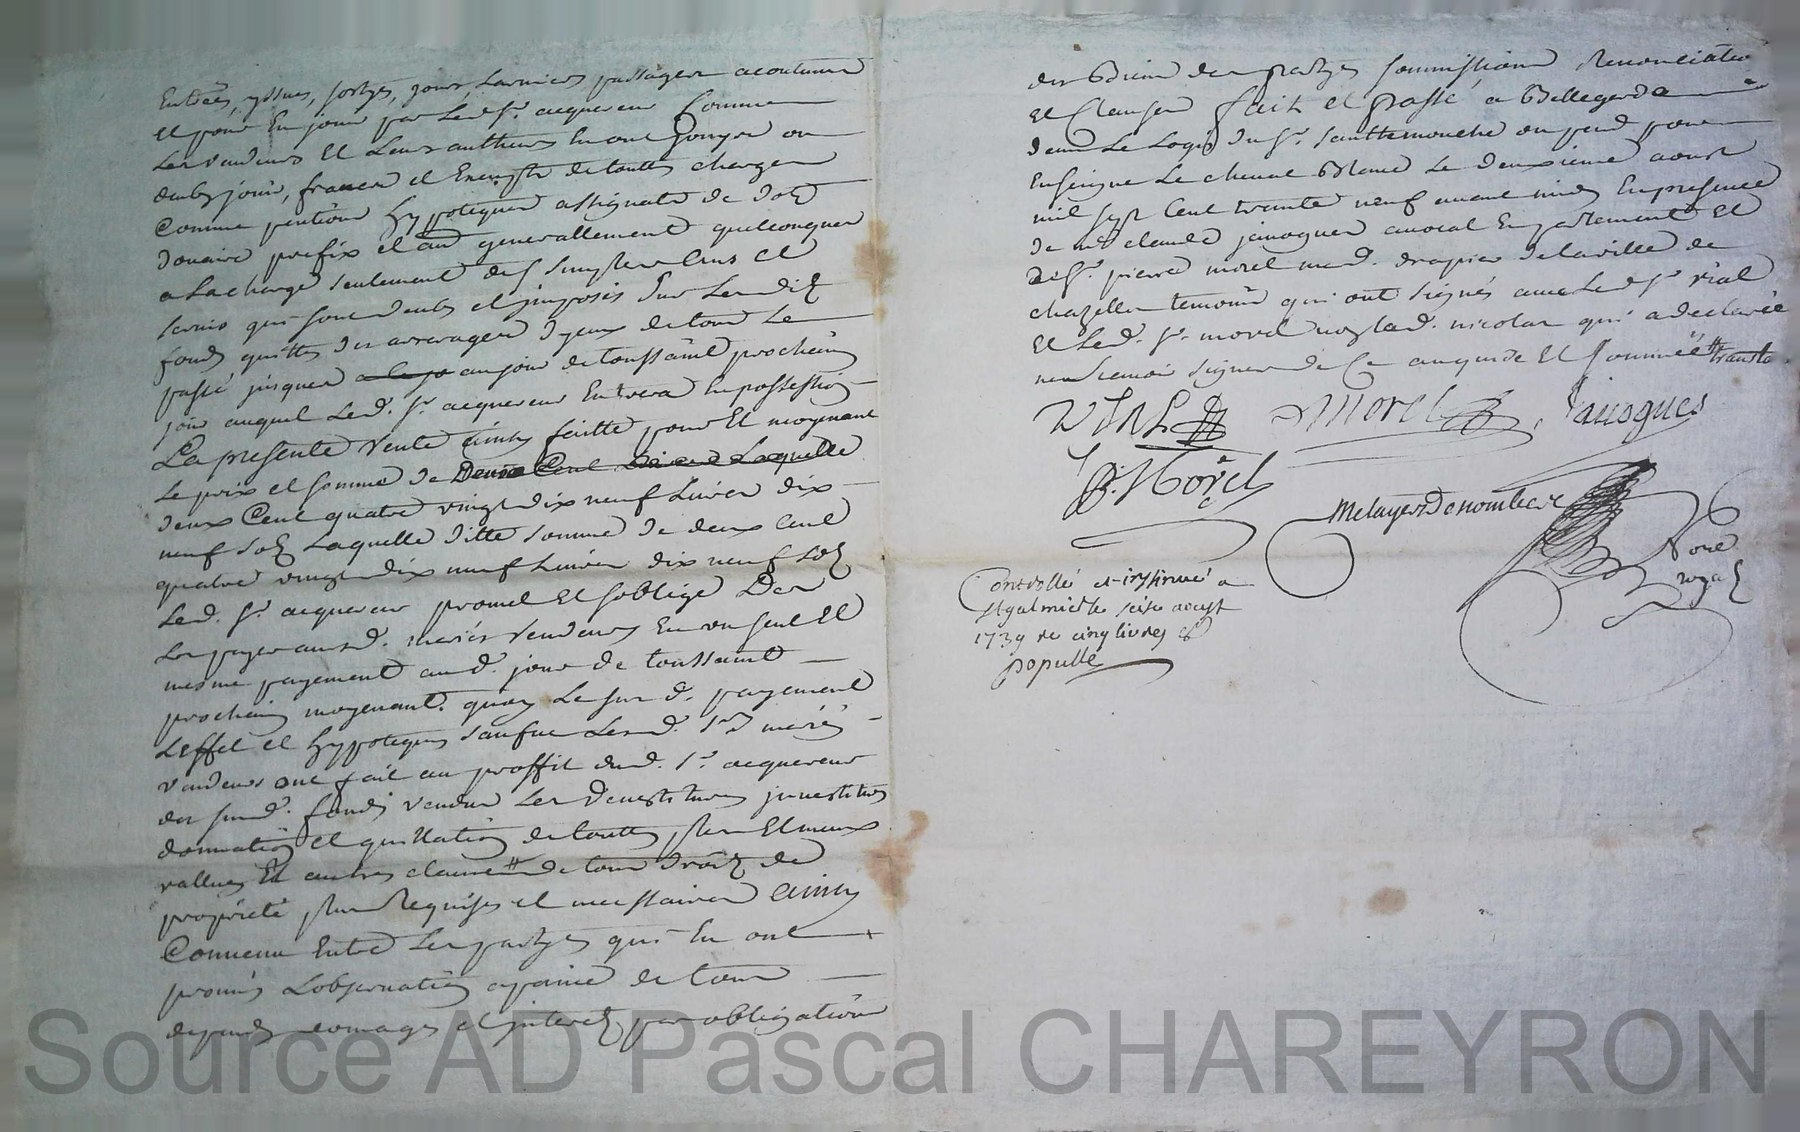 Entrées, yssues, sortyes, jours, larmiers passages acoutumes
et pour En jouir par Led. Sr. acquereur Comme
Les vendeurs et Leurs autheurs En ont jouyes ou
deub jouir, francs et Exempts de touttes charges
Comme pentions hypoteques assignats de dot
douaire prefix et au generallement quelconques
a La charge seulement des simples Cens et
servis qui sont deubs et jmposés Sur Lesdits
fonds quittes des arrerages d'yceux de tout Le
passé jusques au jour de toussaint prochain
jour auquel Led. Sr. acquereur Entrera En possession
La presente vente ainsy faitte pour Et moyenant
Le prix et somme de Deux Cent Laquelle
deux Cent quatre vingt dix neuf Livres dix
neuf sols Laquelle ditte somme de deux Cent
quatre vingt dix neuf Livres dix neuf sols
Led. Sr. acquereur promet Et soblige Des
Les payer ausd. mariés vendeurs En un seul Et
mesme payement aud. jour de toussaint
prochain moyenant quoy Le sus d. payement
Leffet et hypoteques sauf que Lesd. mariés
vendeurs ont fait au proffit dud. Sr. acquereur
des susd. fonds vendus Les devestitures jnvestitures
donnation et quittation de touttes plus Et meux
vallues Et autres clauses de tous droits de
propriété plus Requises et necessaires ainsy
Convenu Entre Les partyes qui En ont
promis Lobservation a peine de tous
depends domages et jnterets par obligation
des Biens des partyes soumissions Renonciation
et Clauses fait et passé a Bellegarde
dans Le Logis du Sr. santtemouche ou pend pour
Enseigne Le cheval Blanc Le deuxieme aoust
mil sept Cent trente neuf avant midy En presence
de me. claude janogues avocat En parlement et
de Sr. pierre morel mard. drapier de la ville de
chazelles temoins qui ont signés avec Led. Sr. vial
et Led. Sr. morel non lad. nicolas qui a declarée
ne scavoir signer de Ce enquise Et sommée
VIAL Morel Janogues
P. Morel
Metayer Denombe
Note
royal
Controllé et insinué a
St galmier le seise aoust
1739 re cinq livres
Populle
Source AD Pascal CHAREYRON